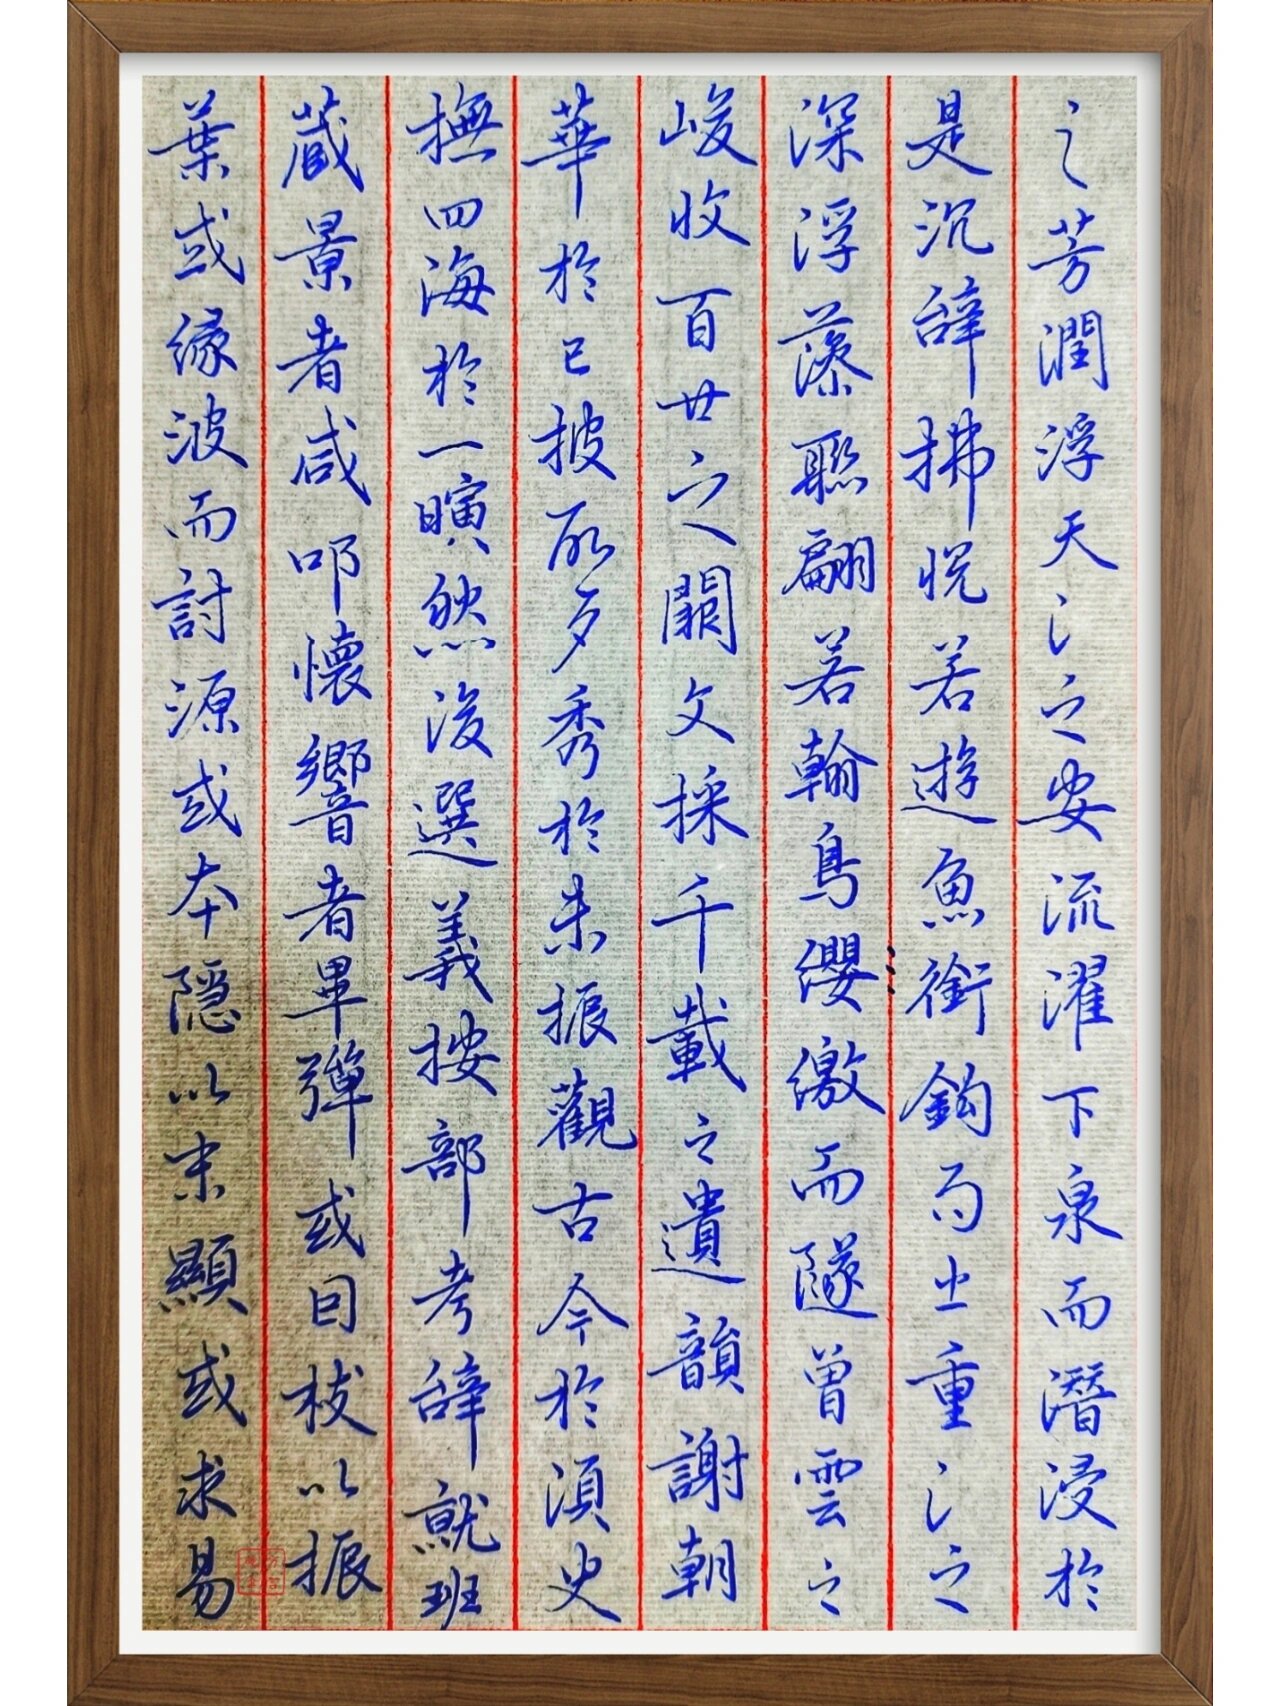 之芳潤浮天之之安流濯下泉而潛浸於
是沉辭拂悅若遊魚銜鈎而出重之之
深浮藻聯翩若翰鳥纓繳而隧曾雲之
峻收百世之闕文採千載之遺韻謝朝
華於已披啟夕秀於未振觀古今於須臾
撫四海於一瞚然後選義按部考辭就班
蔵景者咸叩懷響者畢彈或因枝以振
葉或緣波而討源或本隱以末顯或求易